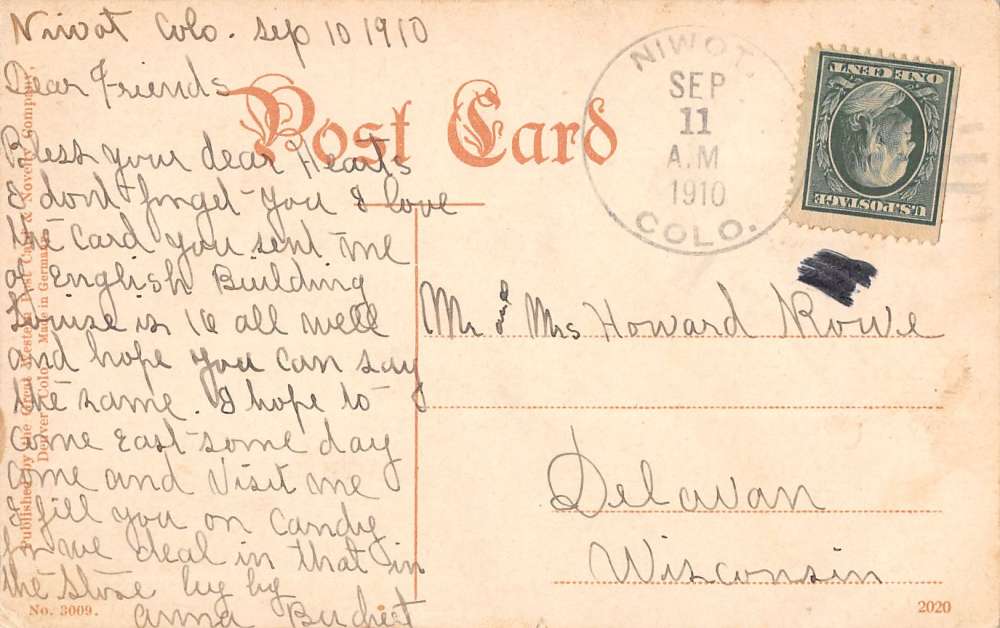 Niwot Colo. Sep 10 1910
Dear Friends
Bless your dear Hearts
I dont forget you I love
the Card you sent me
of English Building
Louise is 16 all well
and hope you can say
the same. I hope to
come East some day
come and visit me
I fill you on candy
for we deal in that in
the Store by by
Anna
Post Card
NIWOT,
SEP
11
A.M
1910
COLO.
ONE CENT
U.S. POSTAGE
Mr & Mrs Howard Rowe
Delavan
Wisconsin
Published by the Great Western Post Card & Novelty Company,
Denver, Colo. Made in Germany
No. 3009.
2020